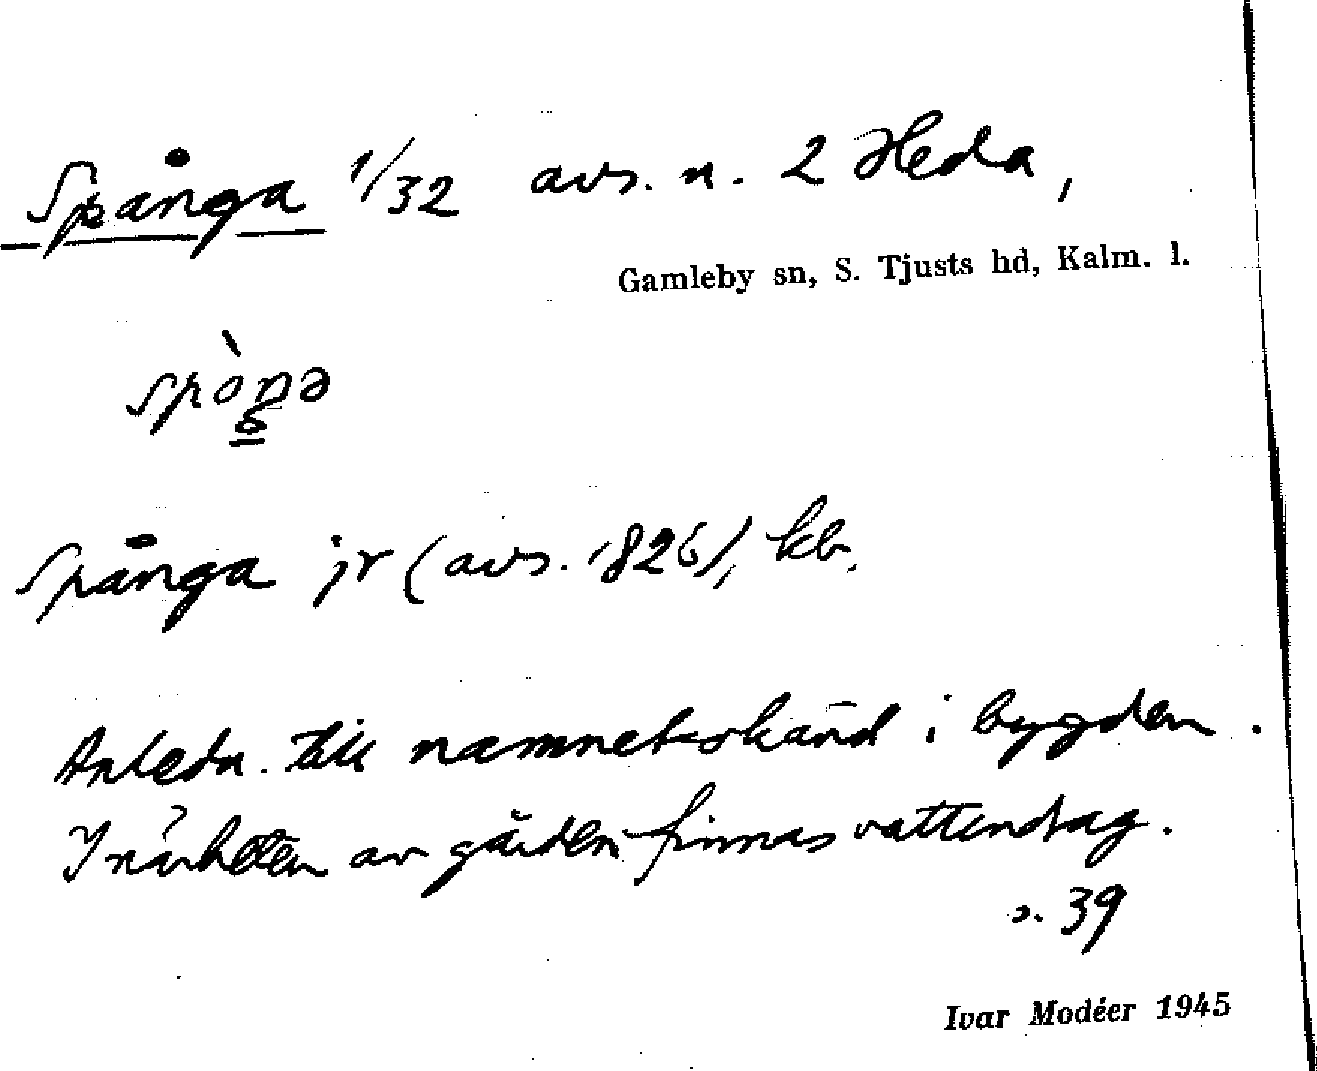 Spånga 1/32 avs. n. 2 Heda,
Gamleby sn, S. Tjusts hd, Kalm. l.
Spånga jr (avs. 1826), kb.
Anledn. till namnet okänd i bygden.
I närheten av gården finnas vattendrag.
s. 39
Ivar Modéer 1945